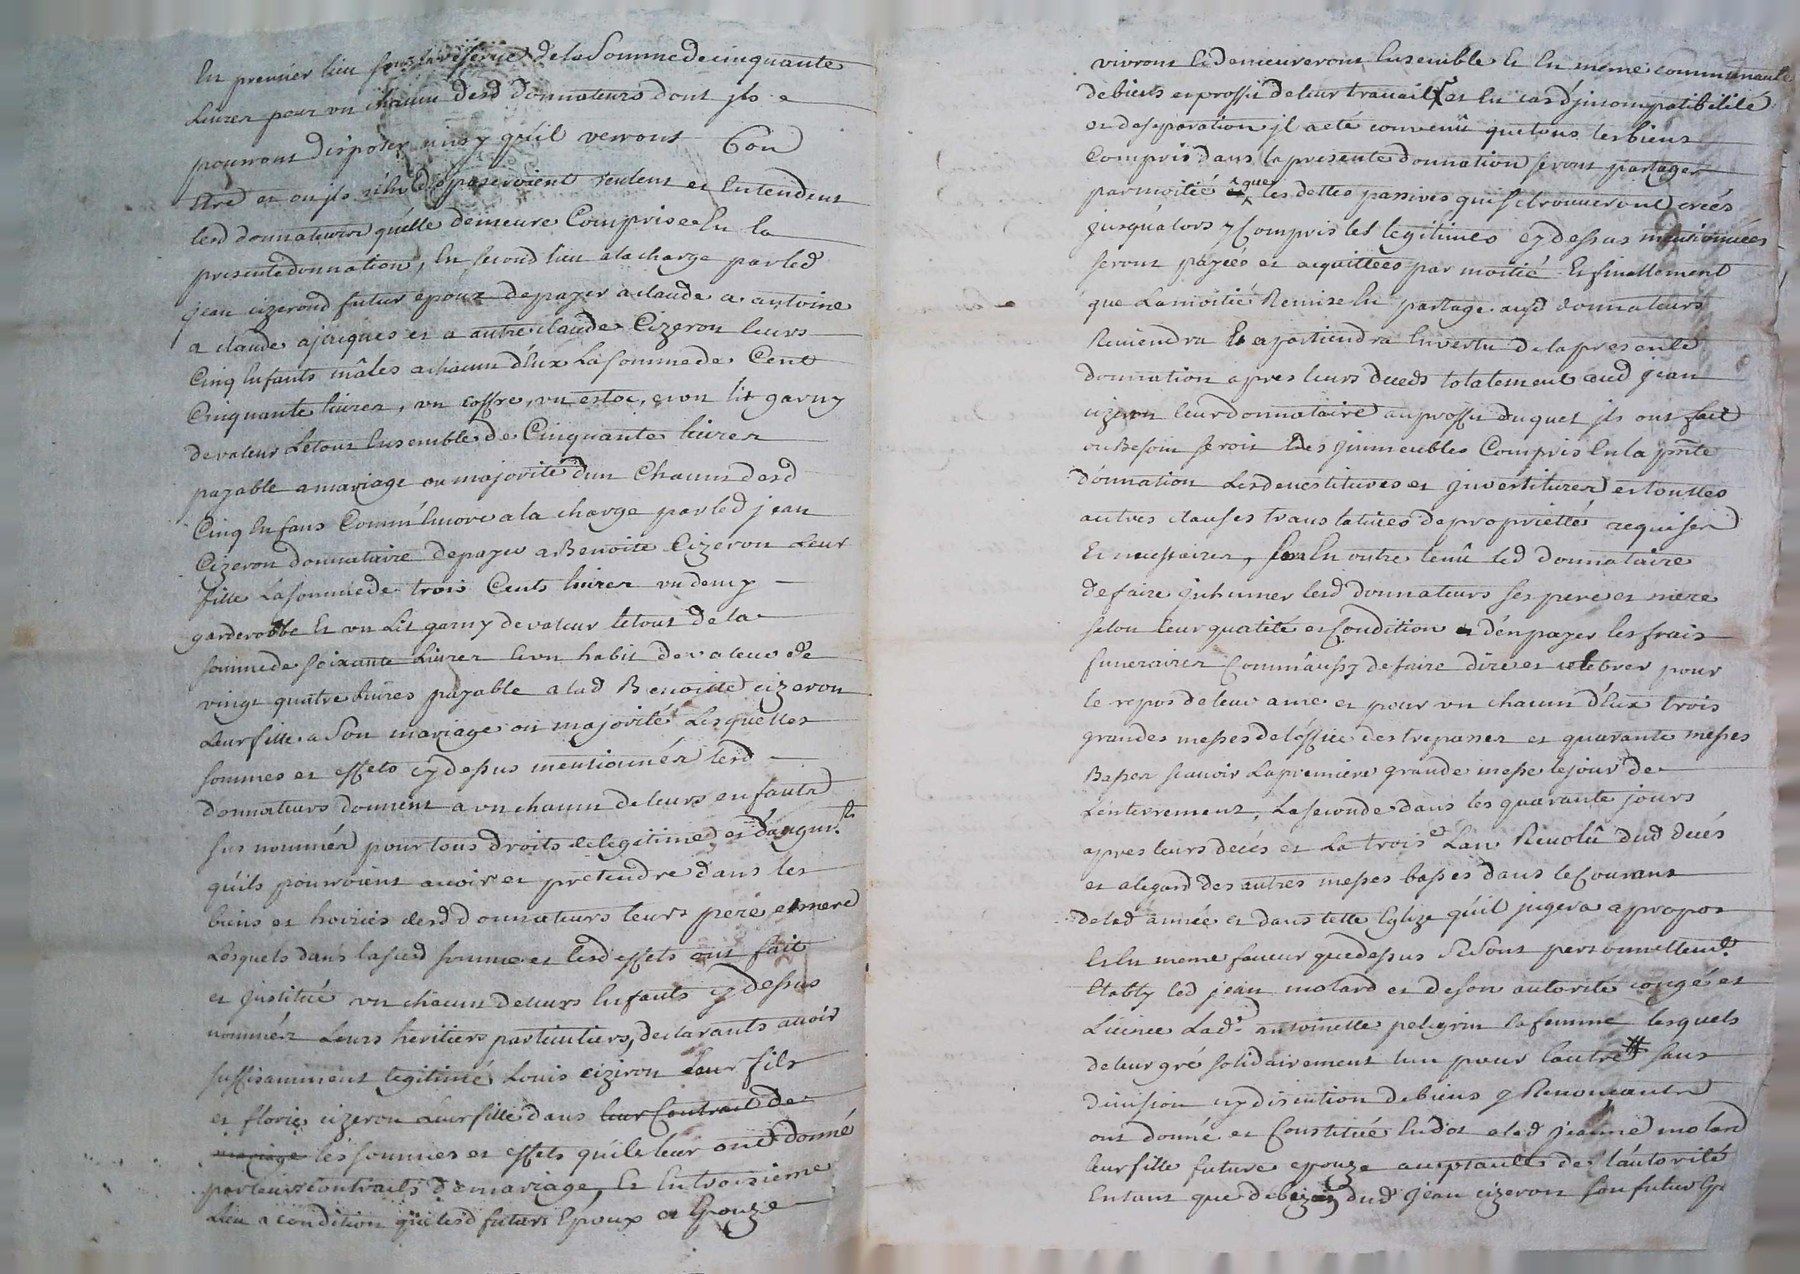 En premier lieu sous la reserve de la Somme de cinquante
Livres pour un chacun desd donnateurs dont jls
pourront disposer ainsy qu'il verront Bon
Etre et ou jls n'en disposeroient veulent et Entendent
lesd donnateurs qu'elle demeure Comprise En la
presente donnation, En second lieu a la charge par led
jean cizerond futur epoux de payer a claude a antoine
a claude a jacques et a autre claude Cizeron leurs
Cinq Enfants mâles a chacun d'Eux La somme de Cent
Cinquante livres, un coffre, un estoc, et un lit garny
de valeur Le tout Ensemble de Cinquante livres
payable a mariage ou majorité d'un Chacun desd
Cinq Enfans Comm'Encore a la charge par led jean
Cizeron donnataire de payer a Benoite Cizeron Leur
fille La somme de trois Cents livres un demy
garderobbe Et un Lit garny de valeur le tout de la
somme de soixante Livres Et un habit de valeur de
vingt quatre livres payable a lad Benoitte cizeron
Leur fille a Son mariage ou majorité Lesquelles
sommes et effets cy dessus mentionnés lesd
donnateurs donnent a un chacun de leurs enfants
sus nommés pour tous droits de legitime et d'augmt
qu'ils pourroient avoir et pretendre dans les
biens et hoiries desd donnateurs leurs pere et mere
Lesquels dans lasusd somme et lesd effets ont fait
et jnstitué un chacun de leurs Enfants cy dessus
nommés Leurs heritiers particuliers, declarants avoir
suffisamment legitimé Louis cizeron Leur fils
et florie cizeron Leur fille dans leur Contrait de
mariage les sommes et effets qu'ils leur ont donné
par leurs contraits de mariage, Et En troisieme
Lieu a condition que lesd futurs Epoux et Epouze
vivront Et demeureront Ensemble Et En meme communauté
de biens et proffit de leur travail et En cas d'jncompatibilité
et de separation jl a eté convenû que tous les biens
Compris dans la presente donnation seront partages
par moitié que les dettes passives qui se trouveront crées
jusqu'alors y Compris les legitimes cy dessus mentionnées
seront payées et acquittées par moitié Et finallement
que La moitié Remise En partage auxd donnateurs
Reviendra Et apartiendra En vertu de la presente
donnation apres leurs decés totalement aud jean
cizeron leur donnataire au proffit duquel jls ont fait
ou Besoin seroit des jmmeubles Compris En la pnte
donnation Les devestitures et jnvestitures et touttes
autres clauses translatives de proprieté requises
Et necessaires, sera En outre tenû led donnataire
de faire jnhumer lesd donnateurs ses pere et mere
selon leur qualité et Condition d'en payer les frais
funeraires Comm'aussy de faire dire et celebrer pour
le repos de leur ame et pour un chacun d'Eux trois
grandes messes de l'office des trepassez et quarante messes
Basses scavoir La premiere grande messe le jour de
L'enterrement, La seconde dans les quarante jours
apres leurs decés et La trois.e L'an Revolû dud decés
et a legard des autres messes basses dans le Courant
de lad année et dans telle Eglize qu'il jugera a propos
Et En meme faveur que dessus Se Sont personnellemt
Etably led jean molard et de son autorité congé et
Licence Lad.e antoinette pelegrin sa femme lesquels
de leur gré solidairement l'un pour l'autre # sans
division ny discution de biens y Renonceants
ont donné et Constitué En dot a lad jeanne molard
leur fille future epouze acceptante de l'autorité
Entant que de bezoin dud jean cizeron son futur Ep